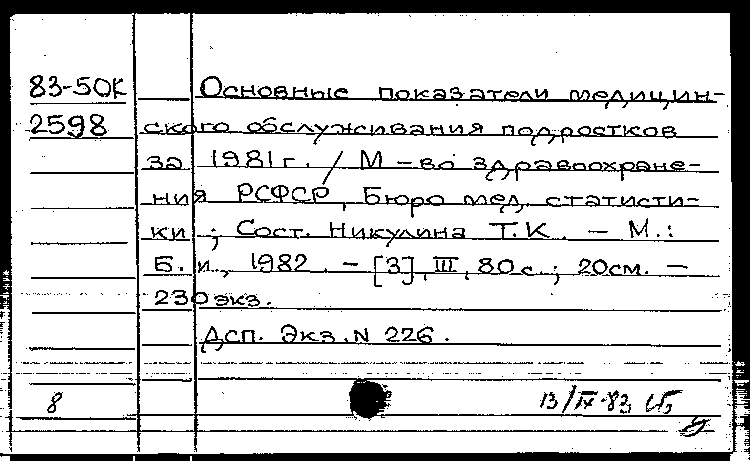 83-50К Основные показатели медицин-
2598 ского обслуживания подростков
за 1981г. / М-во здравоохране-
ния РСФСР, Бюро мед. статисти-
ки ; Сост. Никулина Т.К. – М.:
Б. и., 1982. – [3], III, 80с. ; 20см. –
230экз.
Дсп. Экз. N 226.
8 13/IV-83